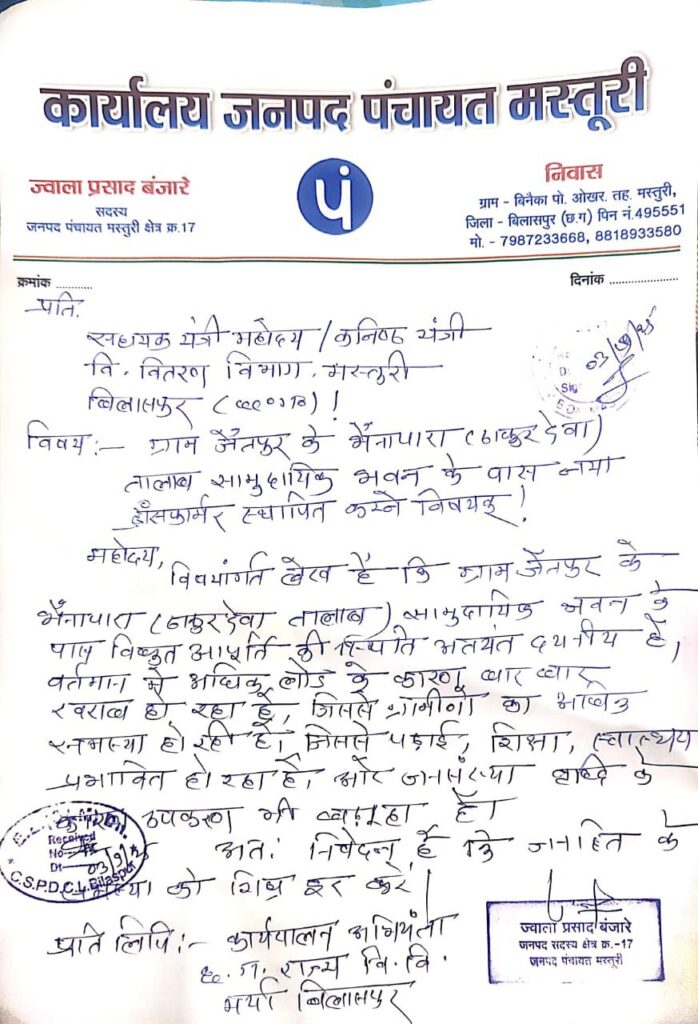 कार्यालय जनपद पंचायत मस्तूरी
ज्वाला प्रसाद बंजारे
सदस्य
जनपद पंचायत मस्तुरी क्षेत्र क्र.17
पं
निवास
ग्राम - बिनैका पो. ओखर. तह. मस्तुरी,
जिला - बिलासपुर (छ.ग) पिन नं.495551
मो. - 7987233668, 8818933580
क्रमांक ..........
दिनांक ....................
प्रति,
सहायक यंत्री महोदय / कनिष्ठ यंत्री
वि. वितरण विभाग. मस्तुरी
बिलासपुर !
03/9/25
विषय :- ग्राम जैतपुर के भैनापारा (ठाकुर देवा)
तालाब सामुदायिक भवन के पास नया
ट्रांसफार्मर स्थापित करने विषयक !
महोदय,
विषयांर्गत लेख है कि ग्राम जैतपुर के
भैनापारा (ठाकुर देवा तालाब) सामुदायिक भवन के
पास विद्युत आपूर्ति की स्थिति अत्यंत दयनीय है,
वर्तमान में अधिक लोड के कारण बार बार
खराब हो रहा है, जिससे ग्रामीणों का
समस्या हो रही है। जिससे पढ़ाई, शिक्षा, स्वास्थ्य
प्रभावित हो रहा है, और जनसंख्या वृद्धि के
कारण उपकरण भी है।
अतः निवेदन है कि जनहित के
समस्या को शिघ्र दूर करें।
Received
No
Dt 03/9/25
C.S.P.D.C.L. Bilaspur
ज्वाला प्रसाद बंजारे
जनपद सदस्य क्षेत्र क्र.-17
जनपद पंचायत मस्तूरी
प्रति लिपि :- कार्यपालन अभियंता
छ. ग. राज्य वि. वि.
बिलासपुर